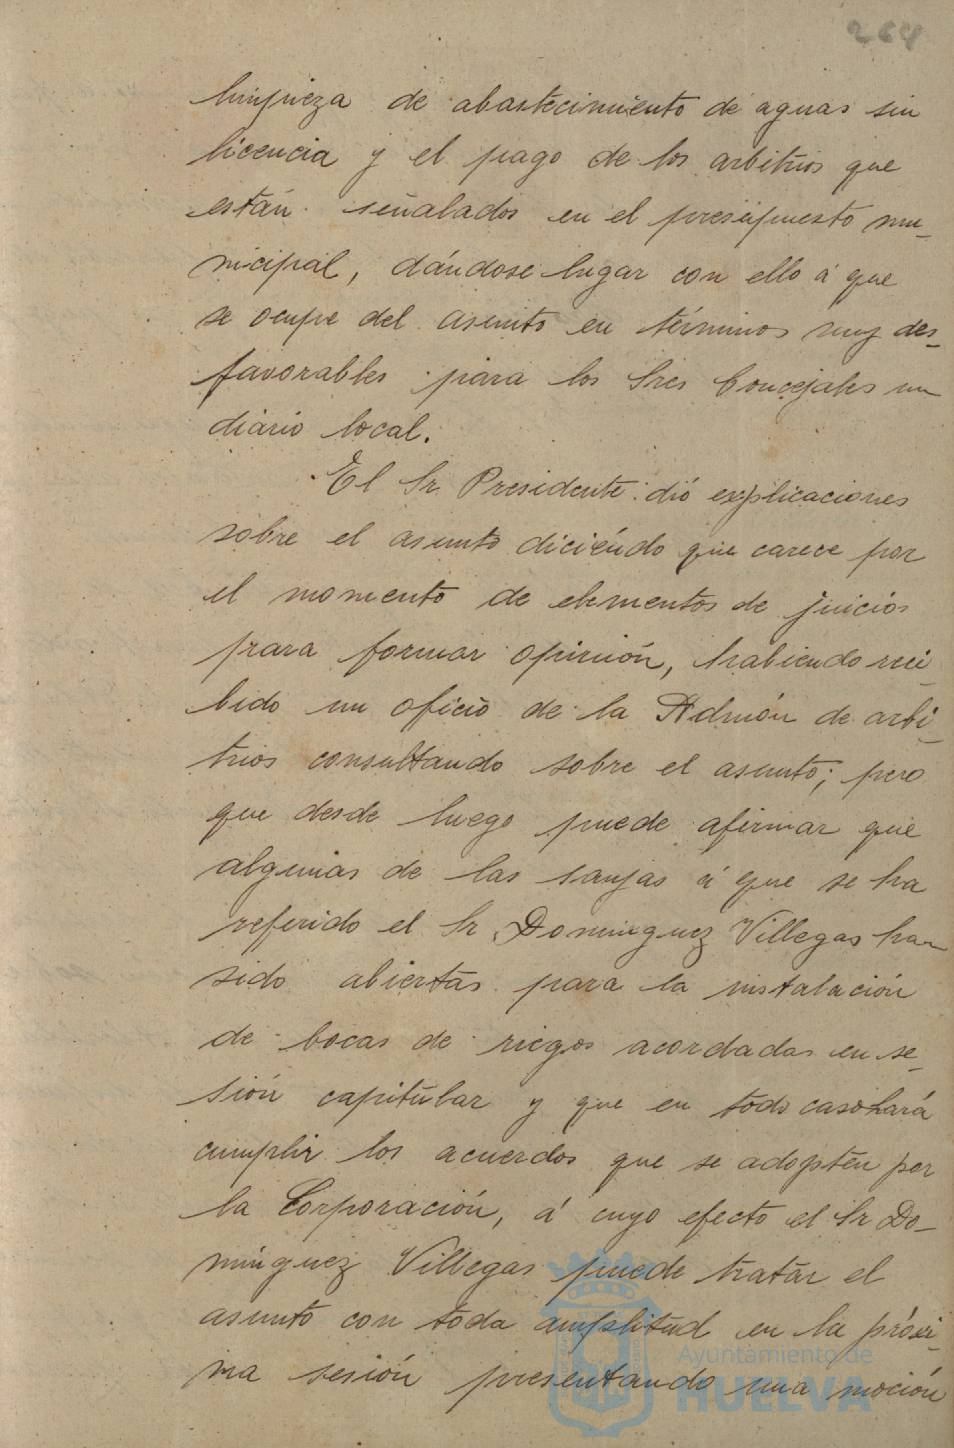 264
limpieza de abastecimiento de aguas sin
licencia y el pago de los arbitrios que
están señalados en el presupuesto mu-
nicipal, dándose lugar con ello á que
se ocupe del asunto en términos muy des-
favorables para los Sres Concejales un
diario local.
El Sr. Presidente dió explicaciones
sobre el asunto diciéndo que carece por
el momento de elementos de juicios
para formar opinión, habiendo reci-
bido un oficio de la Admón de arbi-
trios consultando sobre el asunto; pero
que desde luego puede afirmar que
algunas de las sanjas á que se ha
referido el Sr Dominguez Villegas han
sido abiertas para la instalación
de bocas de riegos acordadas en se-
sión capitular y que en todo caso hará
cumplir los acuerdos que se adopten por
la Corporación, á cuyo efecto el Sr Do-
minguez Villegas puede tratar el
asunto con toda amplitud en la próxi-
ma sesión presentando una moción
Ayuntamiento de
HUELVA